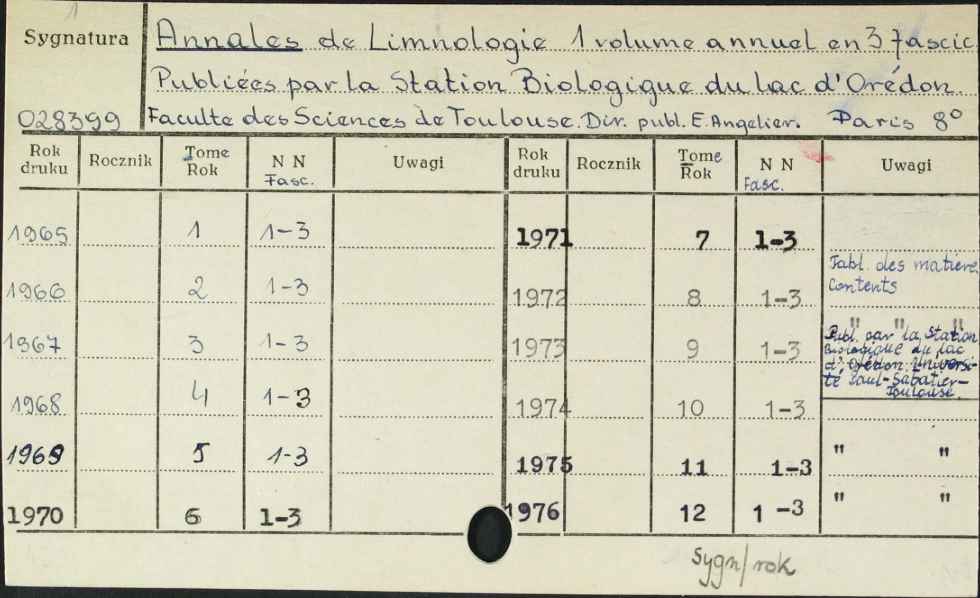 1
Sygnatura
Annales de Limnologie 1 volume annuel en 3 fascic
Publiées par la Station Biologique du lac d'Orédon.
028399 Faculte des Sciences de Toulouse. Dir. publ. E. Angelier. Paris 8°
Rok druku Rocznik Tome Rok N N Fasc. Uwagi Rok druku Rocznik Tome Rok N N Fasc. Uwagi
1965 1 1-3 1971 7 1-3
1966 2 1-3 1972 8 1-3 Tabl. des matiere Contents
1967 3 1-3 1973 9 1-3 " " "
Publ. par la Station
Biologique du lac
d'Orédon. Universi-
té Paul-Sabatier-
Toulouse.
1968 4 1-3 1974 10 1-3
1969 5 1-3 1975 11 1-3 " "
1970 6 1-3 1976 12 1-3 " "
Sygn/rok